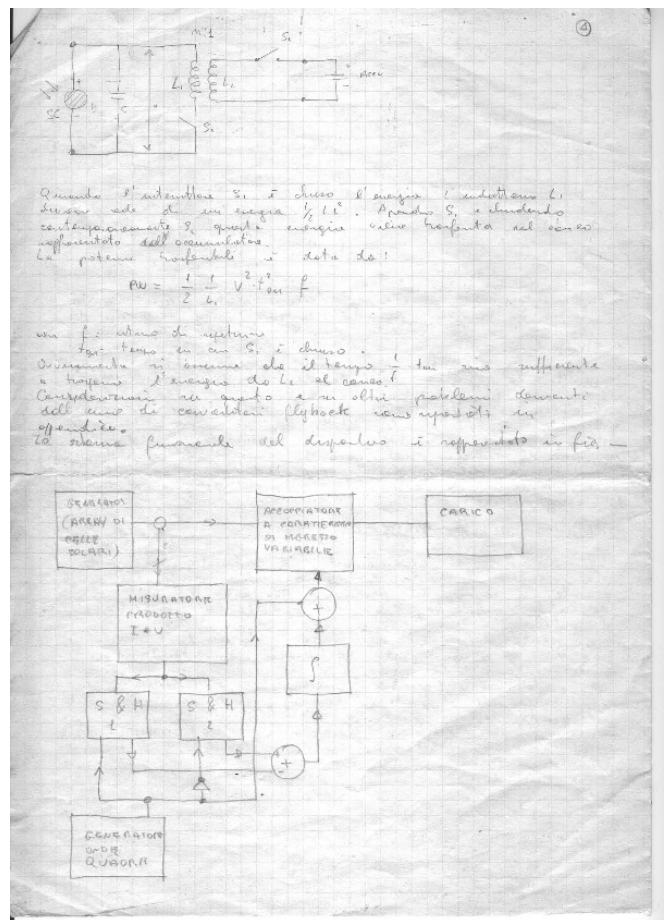 4
m:1
S2
L1 L2
Accu
SC
C
S1
Quando l'interruttore S1 è chiuso l'energia l'induttanza L1
sede di un energia 1/2 L i². Aprendo S1 e chiudendo
contemporaneamente S2 questa energia viene trasferita nel carico
rappresentato dall'accumulatore.
La potenza trasferibile è data da:
PW = 1/2 1/L1 V² t²on f
con f: ritmo di
ton: tempo in cui S1 è chiuso.
Ovviamente si assume che il tempo 1/f - ton sia sufficiente
a trasferire l'energia da L1 al carico.
Considerazioni su questo e su altri problemi
dall'uso di convertitori flyback sono riportati in
appendice.
Lo schema funzionale del dispositivo è rappresentato in fig. —
GENERATORE
(ARRAY DI
CELLE
SOLARI)
ACCOPPIATORE
A CARATTERISTICA
DI INGRESSO
VARIABILE
CARICO
MISURATORE
PRODOTTO
I * V
+
∫
S & H
1
S & H
2
+
GENERATORE
ONDE
QUADRE